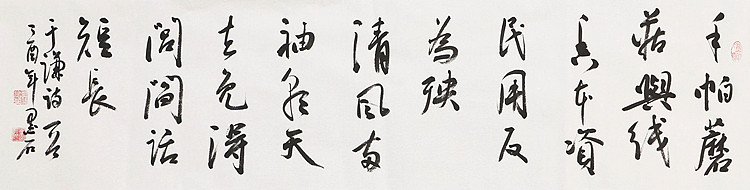 手帕蘑
菇與线
香本資
民用反
為殃
清風两
袖朝天
去免得
閭閻話
短長
于謙詩一首
丁酉年墨石